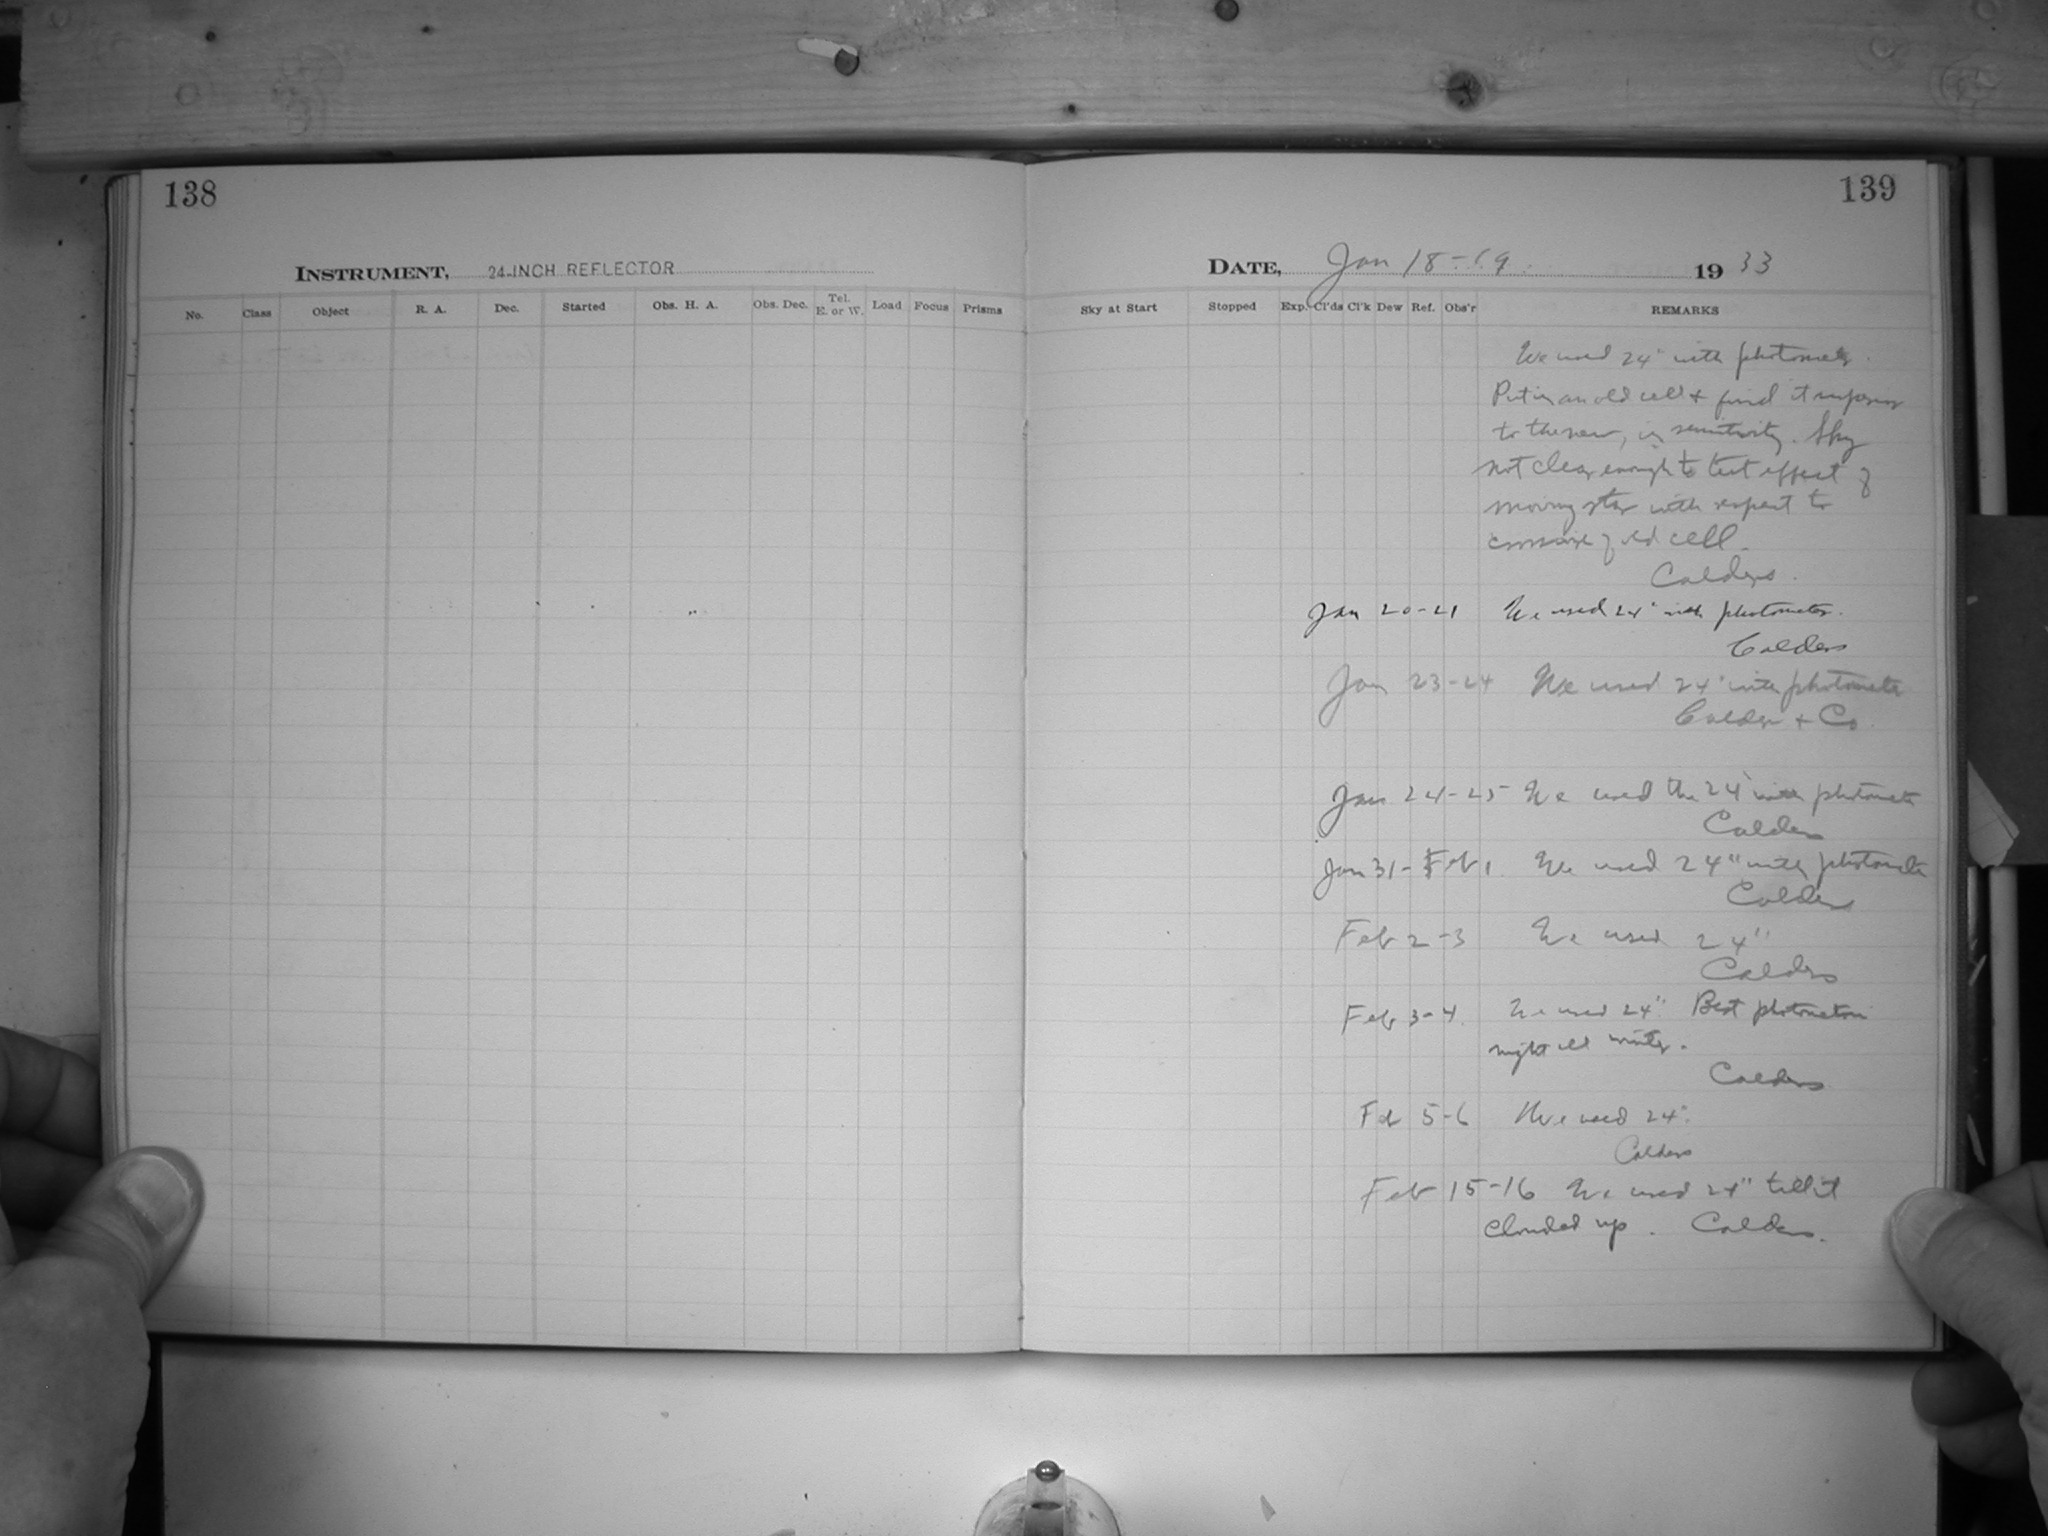 138
INSTRUMENT, 24-INCH REFLECTOR
No. Class Object R. A. Dec. Started Obs. H. A. Obs. Dec. Tel. E. or W. Load Focus Prisms
139
DATE, Jan 18-19. 1933
Sky at Start Stopped Exp. Cl'ds Cl'k Dew Ref. Obs'r REMARKS
We used 24" with photometer.
Put in an old cell & find it superior
to the new, in sensitivity. Sky
not clear enough to test effect of
moving star with respect to
of old cell.
Calder.
Jan 20-21 We used 24" with photometer.
Calder
Jan 23-24 We used 24" with photometer
Calder & Co.
Jan 24-25 We used the 24" with photometer
Calder
Jan 31-Feb 1. We used 24" with photometer
Calder
Feb 2-3 We used 24"
Calder
Feb 3-4. We used 24". Best photometric
night all winter.
Calder
Feb 5-6 We used 24".
Calder
Feb 15-16 We used 24" till it
clouded up. Calder.